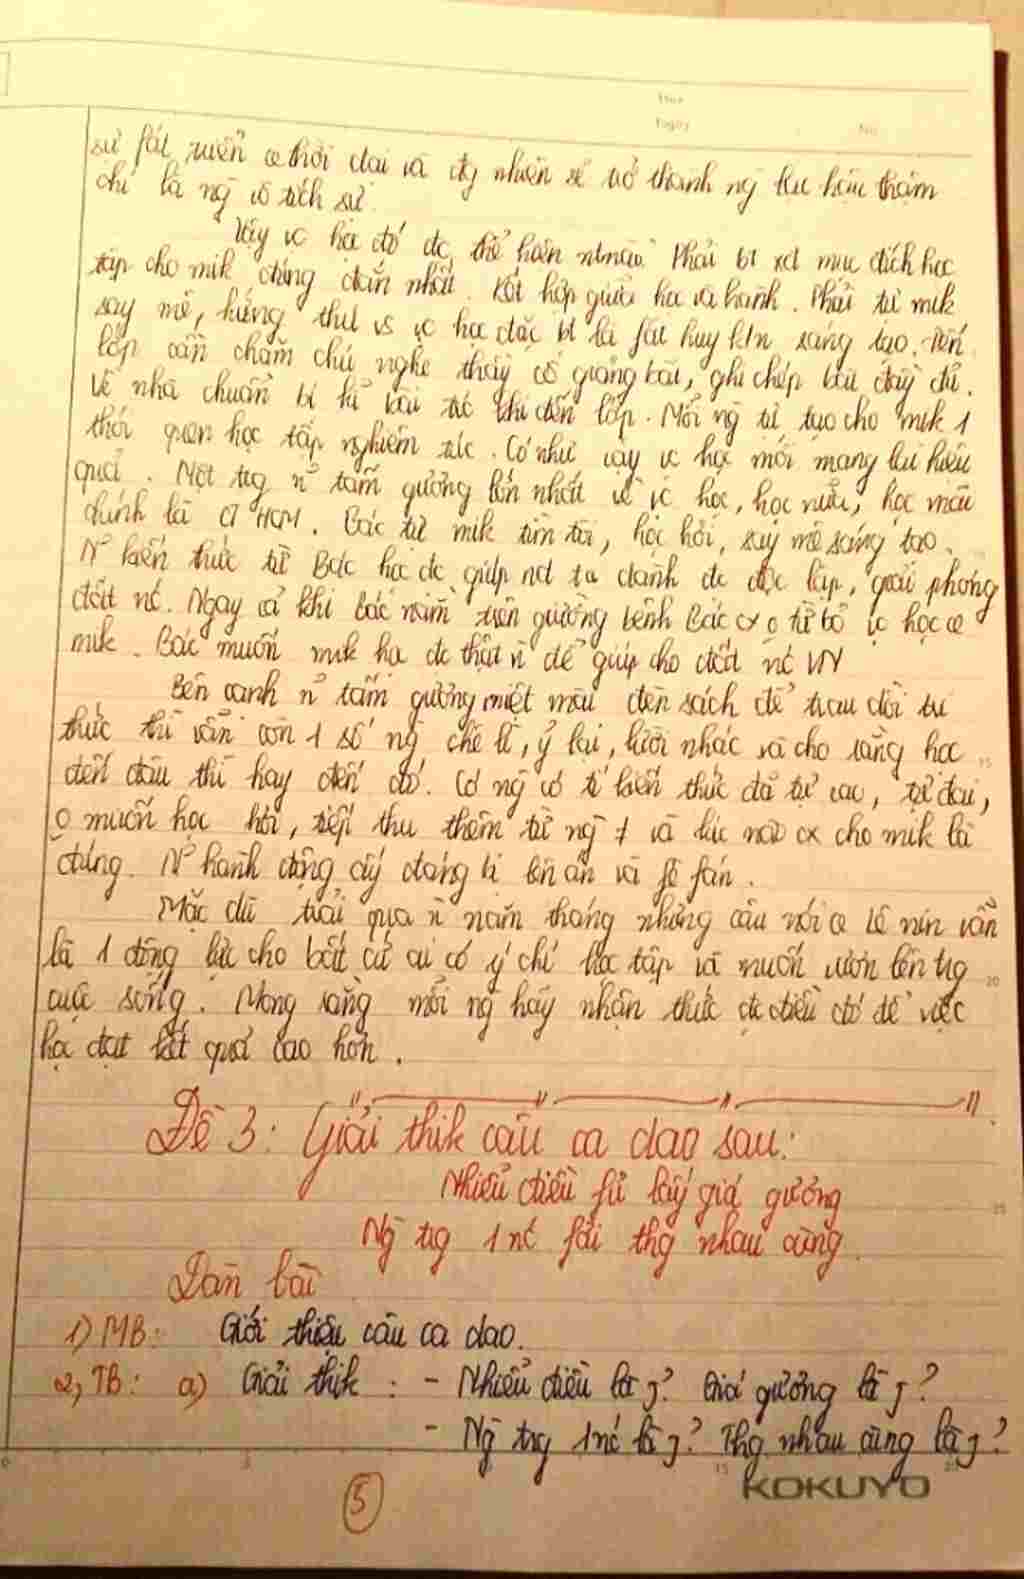 Ngày No
sự fát triển of thời đại và đg nhiên sẽ trở thành ng lạc hậu thậm
chí là ng vô tích sự.
Vậy vc học đó đc thể hiện ntnào? Phải bt xđ mục đích học
tập cho mik đúng đắn nhất. Kết hợp giữa học và hành. Phải tự mik
say mê, hứng thú vs vc học đặc bt là fát huy ktn sáng tạo. Đến
lớp cần chăm chú nghe thầy cô giảng bài, ghi chép bài đầy đủ.
Về nhà chuẩn bị kĩ bài trc khi đến lớp. Mỗi ng tự tạo cho mik 1
thói quen học tập nghiêm túc. Có như vậy vc học mới mang lại hiệu
quả. Một trg n~ tấm gương lớn nhất về vc học, học nữa, học mãi
chính là CT HCM. Bác tự mik tìm tòi, học hỏi, say mê sáng tạo.
N~ kiến thức từ Bác học đc giúp nd ta dành đc độc lập, giải phóng
đất nc. Ngay cả khi Bác nằm trên giường bệnh Bác cx o từ bỏ vc học of
mik. Bác muốn mik học đc thật n` để giúp cho đất nc VN
Bên cạnh n~ tấm gương miệt mài đèn sách để trau dồi tri
thức thì vẫn còn 1 số ng chê lè, ỷ lại, lười nhác và cho rằng học
đến đâu thì hay đến đó. Có ng có tí kiến thức đã tự cao, tự đại,
o muốn học hỏi, tiếp thu thêm từ ng ≠ và lúc nào cx cho mik là
đúng. N~ hành động ấy đáng bị lên án và fê fán.
Mặc dù trải qua n` năm tháng nhưng câu nói of Lê nin vẫn
là 1 động lực cho bất cứ ai có ý chí học tập và muốn vươn lên trg
cuộc sống. Mong rằng mỗi ng hãy nhận thức đc điều đó để việc
học đạt kết quả cao hơn.
Đề 3: Giải thik câu ca dao sau:
Nhiễu điều fủ lấy giá gương
Ng trg 1 nc fải thg nhau cùng
Dàn bài
1) MB: Giới thiệu câu ca dao.
2, TB: a) Giải thik: - Nhiễu điều là j? Giá gương là j?
- Ng trg 1 nc là j? Thg nhau cùng là j?
KOKUYO
5